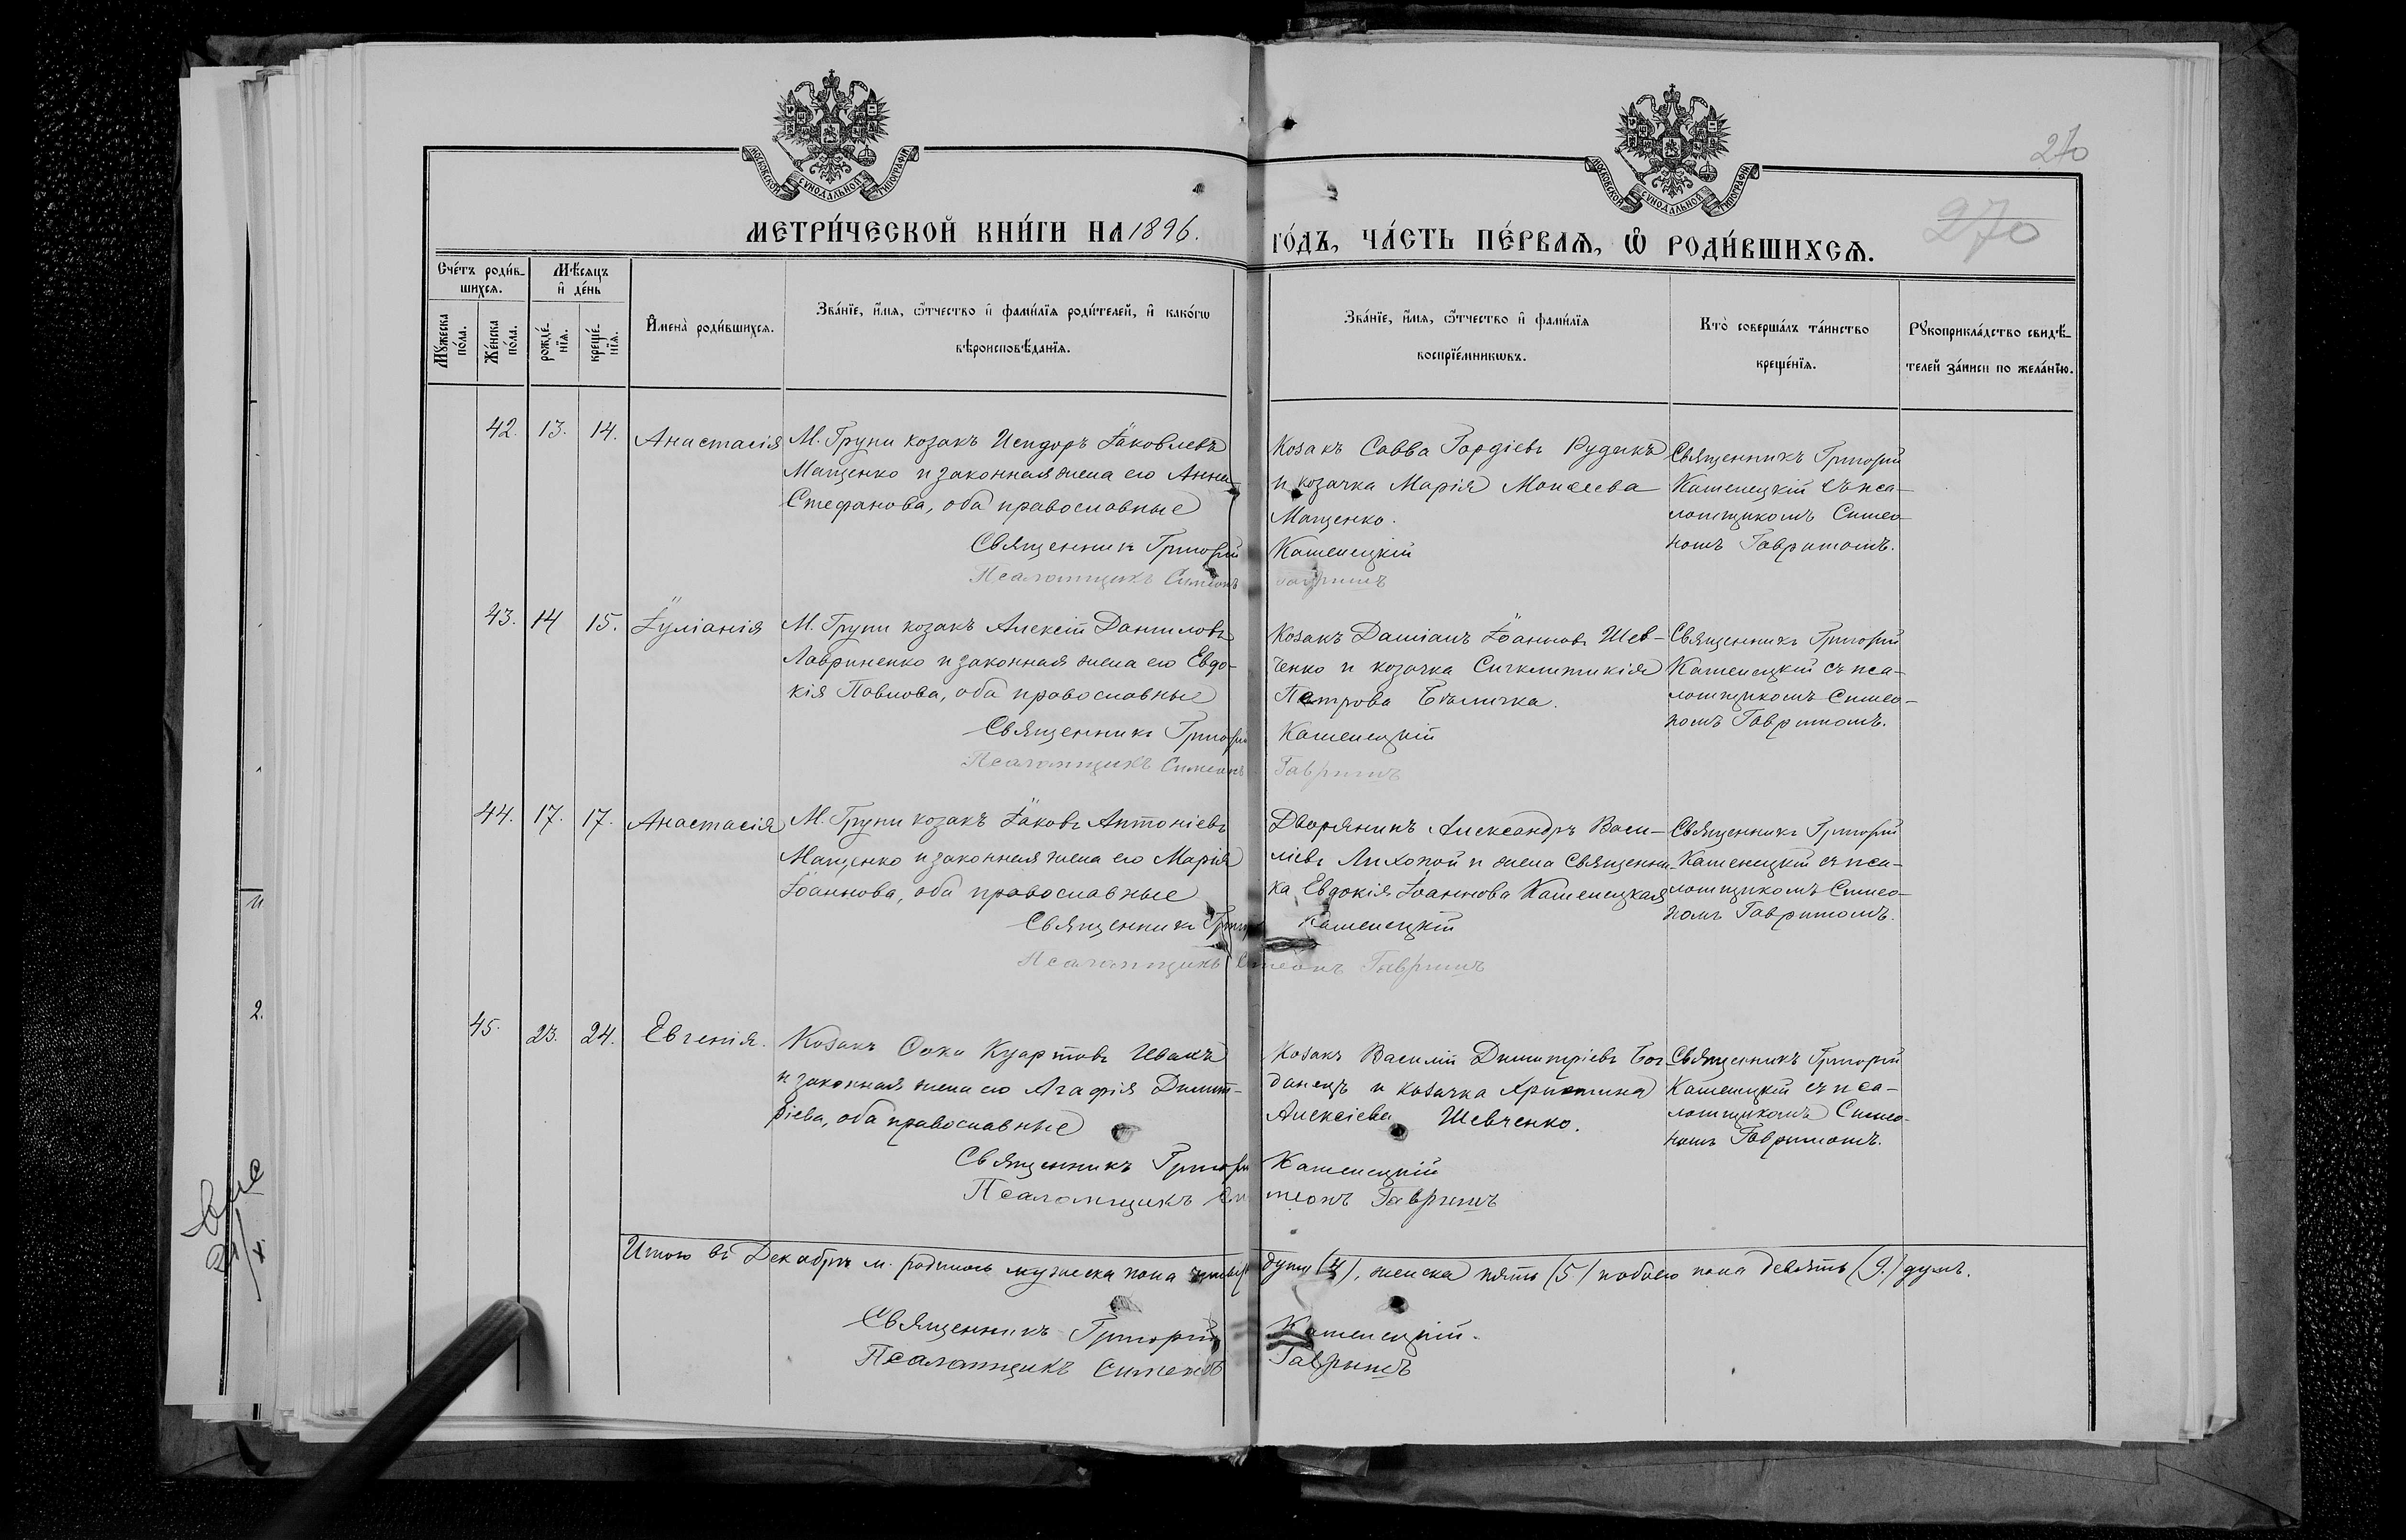 МОСКОВСКОЙ СѴНОДАЛЬНОЙ ТИПОГРАФІИ
МОСКОВСКОЙ СѴНОДАЛЬНОЙ ТИПОГРАФІИ
270
270
МЕТРИ́ЧЕСКОЙ КНИ́ГИ НА 1896. ГО́ДЪ, ЧА́СТЬ ПЕ́РВАѦ, Ѡ҆ РОДИ́ВШИХСѦ.
Сче́тъ роди́в-
шихсѧ.
Мѣ́сѧцъ
и҆ де́нь
Мꙋ́жеска
по́ла.
Же́нска
по́ла.
рожде́-
нїѧ.
креще́-
нїѧ.
И҆мена̀ роди́вшихсѧ.
Зва́нїе, и҆́мѧ, ѻ҆́тчество и҆ фами́лїѧ роди́телей, и҆ како́гѡ
вѣроисповѣ́данїѧ.
Зва́нїе, и҆́мѧ, ѻ҆́тчество и҆ фами́лїѧ
воспрїе́мникѡвъ.
Кто̀ соверша́лъ та́инство
креще́нїѧ.
Рꙋкоприкла́дство свидѣ́-
телей за́писи по жела́нїю.
42. 13. 14. Анастасія
М. Груни козакъ Исидоръ Іаковлевъ
Мащенко и законная жена его Анна
Стефанова, оба православные
Козакъ Савва Гордіевъ Рудикъ
и козачка Марія Моисеева
Мащенко.
Священникъ Григорій
Каменецкій съ пса-
ломщикомъ Симео-
номъ Гавришомъ.
Священникъ Григорій Каменецкій
Псаломщикъ Симеонъ Гавришъ
43. 14 15. Іуліанія
М. Груни козакъ Алексій Даниловъ
Лавриненко и законная жена его Евдо-
кія Павлова, оба православные
Козакъ Даміанъ Іоанновъ Шев-
ченко и козачка Сигклитикія
Петрова Бѣличка.
Священникъ Григорій
Каменецкій съ пса-
ломщикомъ Симео-
номъ Гавришомъ.
Священникъ Григорій Каменецкій
Псаломщикъ Симеонъ Гавришъ
44. 17. 17. Анастасія
М. Груни козакъ Іаковъ Антоніевъ
Мащенко и законная жена его Марія
Іоаннова, оба православные
Дворянинъ Александръ Васи-
ліевъ Лихопой и жена Священни-
ка Евдокія Іоаннова Каменецкая
Священникъ Григорій
Каменецкій съ пса-
ломщикомъ Симео-
номъ Гавришомъ.
Священникъ Григорій Каменецкій
Псаломщикъ Симеонъ Гавришъ
45. 23. 24. Евгенія.
Козакъ Сока Ивакъ
и законная жена его Агафія Димит-
ріева, оба православные
Козакъ Василій Димитріевъ Бог-
данецъ и козачка Христина
Алексіева Шевченко.
Священникъ Григорій
Каменецкій съ пса-
ломщикомъ Симео-
номъ Гавришомъ.
Священникъ Григорій Каменецкій
Псаломщикъ Симеонъ Гавришъ
Итого въ Декабрѣ м. родилось мужеска пола четыре душъ (4), женска пять (5) обоего пола девять (9.) душъ.
Священникъ Григорій Каменецкій.
Псаломщикъ Симеонъ Гавришъ
2.